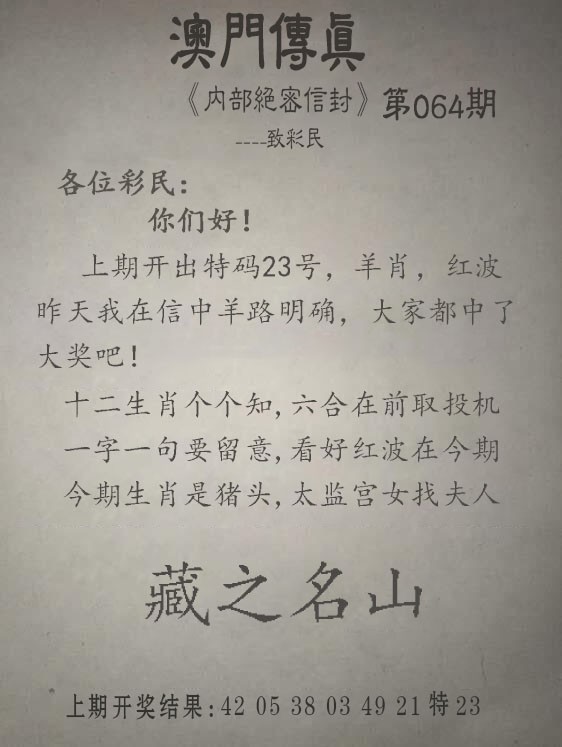 澳門傳真
《内部絕密信封》第064期
----致彩民
各位彩民：
你们好！
上期开出特码23号，羊肖，红波
昨天我在信中羊路明确，大家都中了
大奖吧！
十二生肖个个知,六合在前取投机
一字一句要留意,看好红波在今期
今期生肖是猪头,太监宫女找夫人
藏之名山
上期开奖结果:42 05 38 03 49 21 特 23